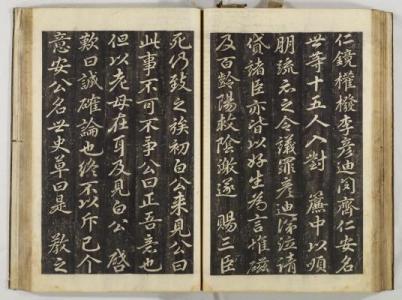 仁鏡權撥李彥迪閔齊仁安名
世等十五人入對 簾中以順
朋疏示之令議罪彥迪涕泣請
貸諸臣亦皆以好生爲言惟磁
及百齡陽救陰逐 賜三臣
死仍致之族初白公來見公曰
此事不可不爭公曰正吾意也
但以老母在耳及見白公 啓
歎曰誠確論也終不以斥已介
意安公名世史草曰是 敎之